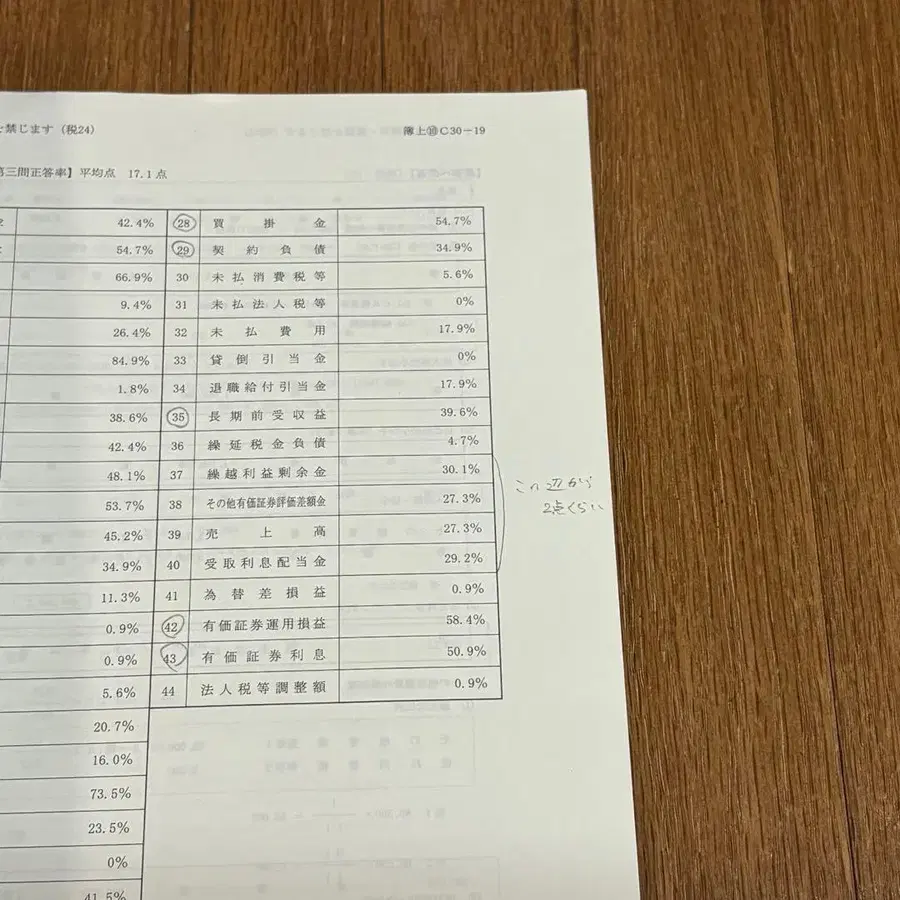 を禁じます（税24）
簿上⑩C30－19
第三問正答率】平均点 17.1点
42.4% 28 買掛金 54.7%
54.7% 29 契約負債 34.9%
66.9% 30 未払消費税等 5.6%
9.4% 31 未払法人税等 0%
26.4% 32 未払費用 17.9%
84.9% 33 貸倒引当金 0%
1.8% 34 退職給付引当金 17.9%
38.6% 35 長期前受収益 39.6%
42.4% 36 繰延税金負債 4.7%
48.1% 37 繰越利益剰余金 30.1%
53.7% 38 その他有価証券評価差額金 27.3%
45.2% 39 売上高 27.3%
34.9% 40 受取利息配当金 29.2%
11.3% 41 為替差損益 0.9%
0.9% 42 有価証券運用損益 58.4%
0.9% 43 有価証券利息 50.9%
5.6% 44 法人税等調整額 0.9%
20.7%
16.0%
73.5%
23.5%
0%
41.5%
この辺から
2点くらい